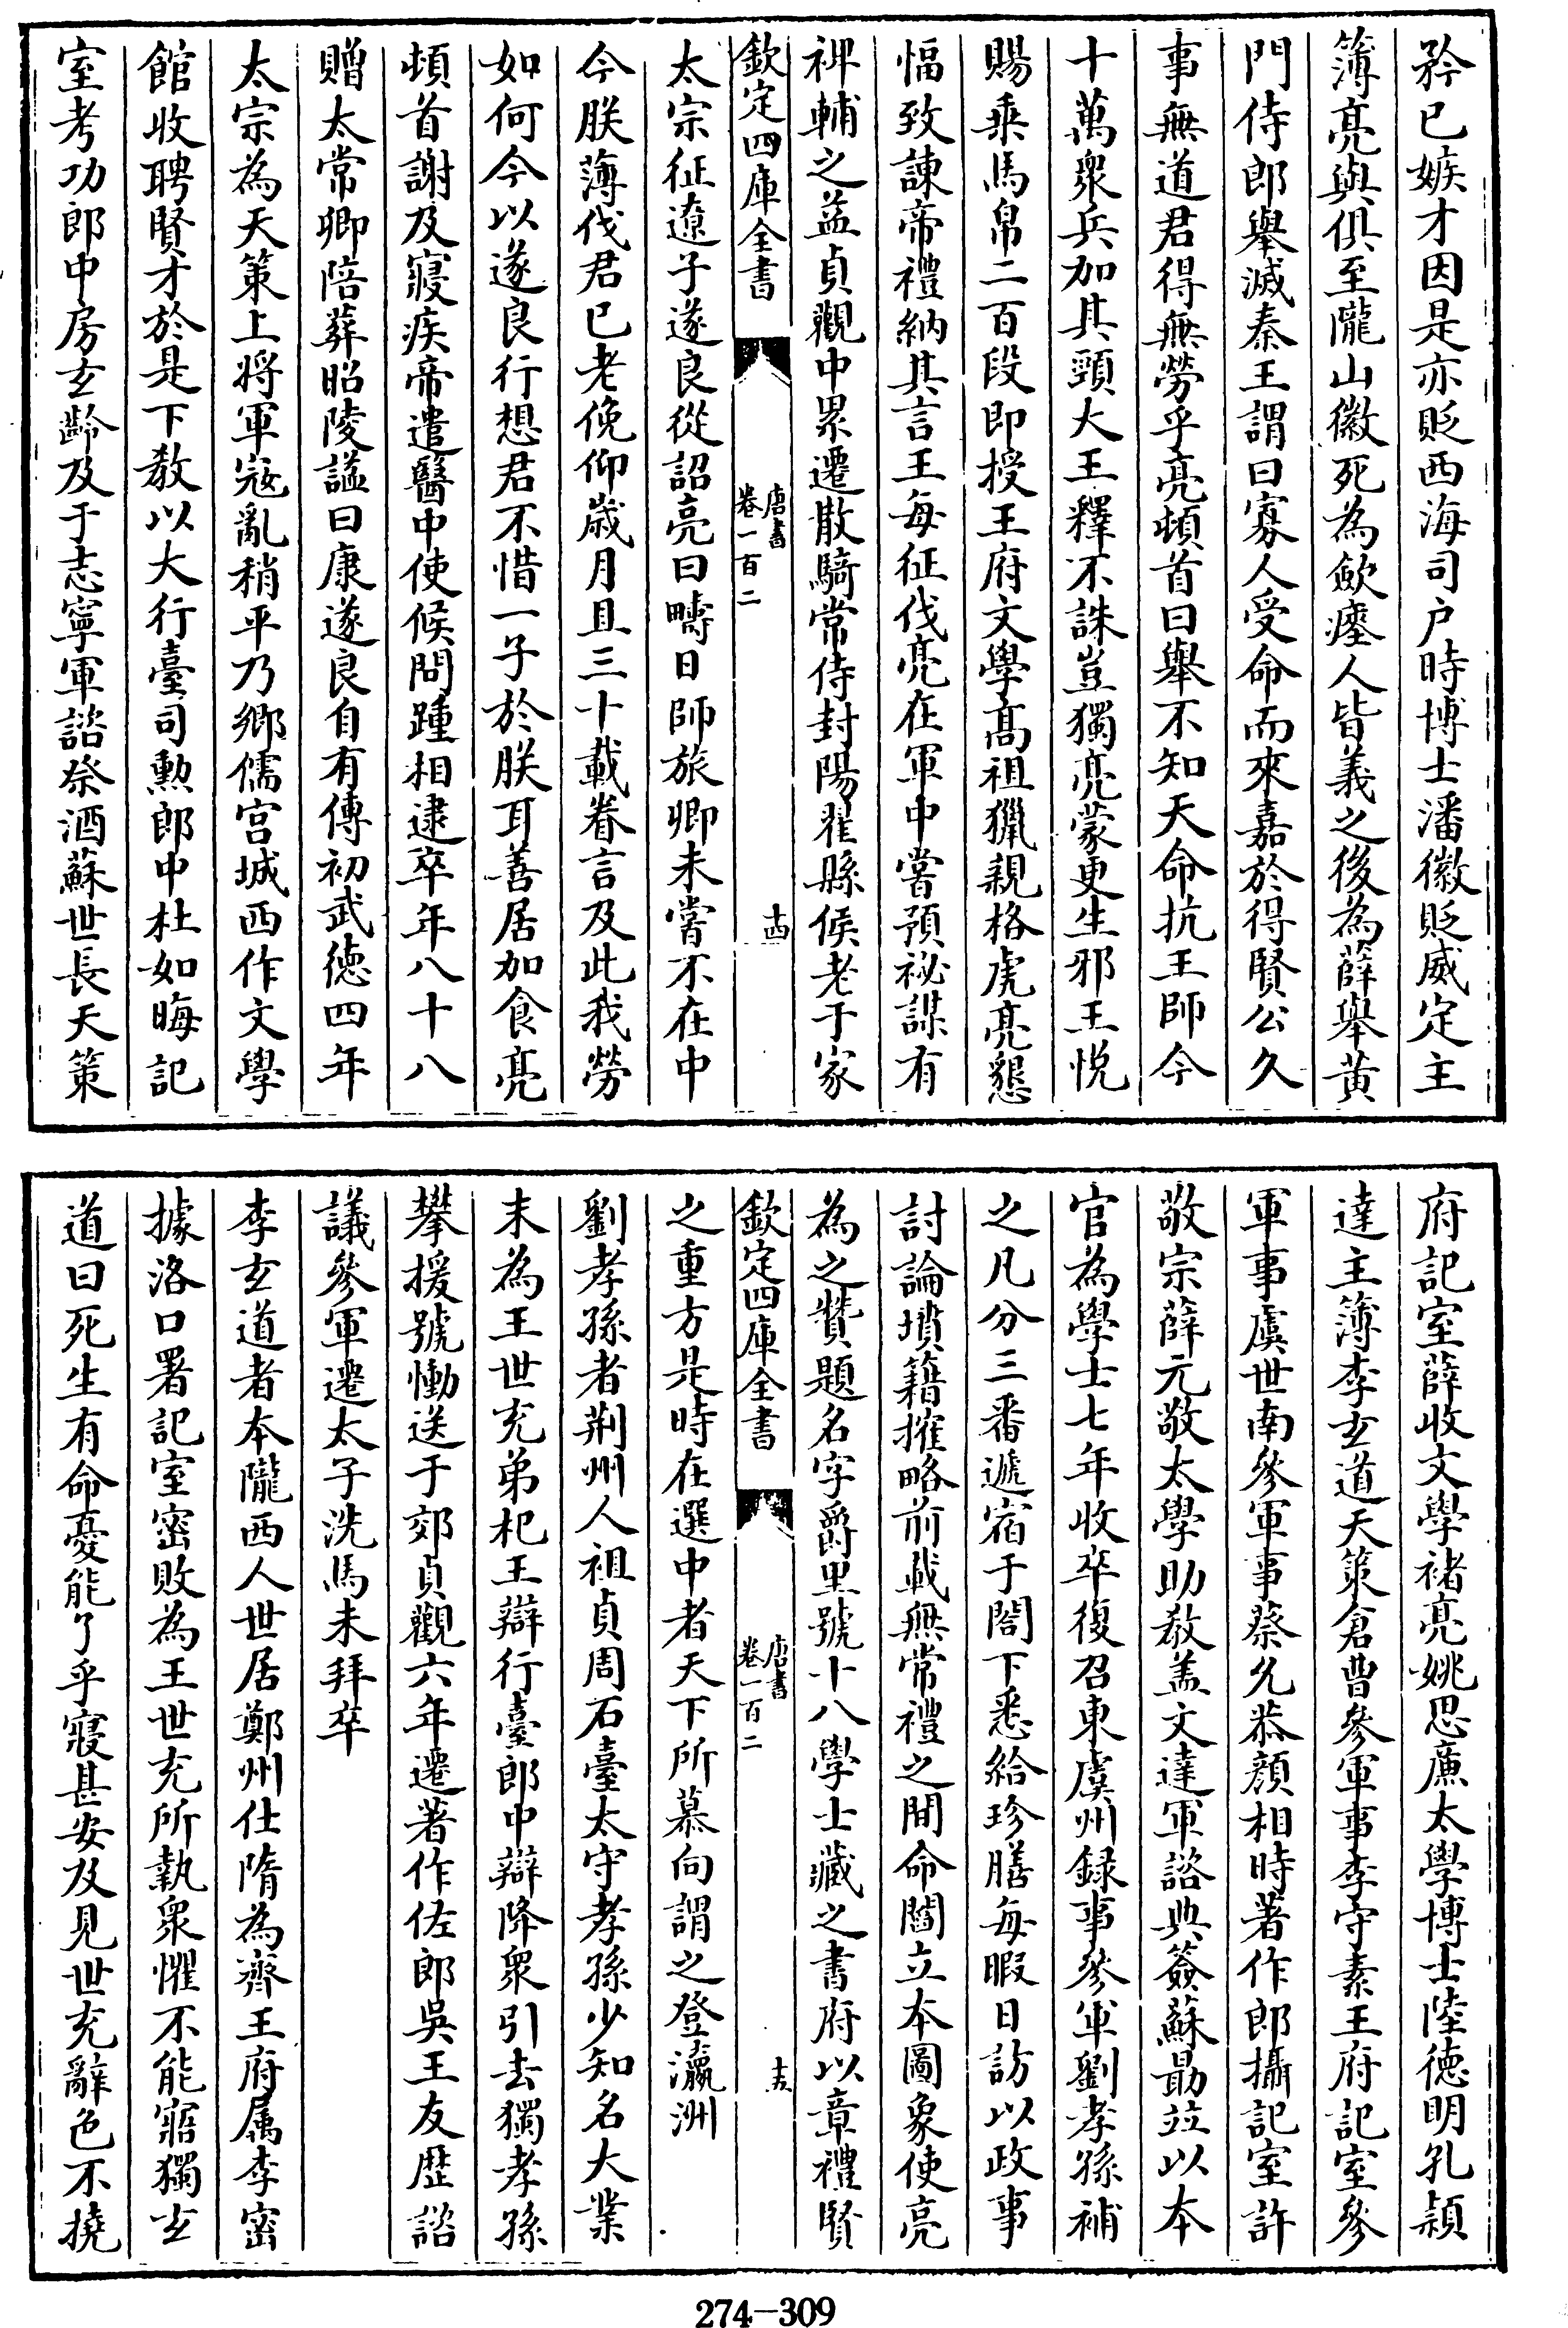 矜已嫉才因是亦貶西海司户時博士潘徽貶威定主
簿亮與俱至隴山徽死為斂瘞人皆義之後為薛舉黃
門侍郎舉滅秦王謂曰寡人受命而來嘉於得賢公久
事無道君得無勞乎亮頓首曰舉不知天命抗王師今
十萬衆兵加其頸大王釋不誅豈獨亮蒙更生邪王悅
賜乘馬帛二百段即授王府文學髙祖獵親格虎亮懇
愊致諫帝禮納其言王每征伐亮在軍中嘗預祕謀有
裨輔之益貞觀中累遷散騎常侍封陽翟縣侯老于家
欽定四庫全書
唐書
卷一百二
十四
太宗征遼子遂良從詔亮曰疇日師旅卿未嘗不在中
今朕薄伐君已老俛仰歲月且三十載眷言及此我勞
如何今以遂良行想君不惜一子於朕耳善居加食亮
頓首謝及寢疾帝遣醫中使候問踵相逮卒年八十八
贈太常卿陪葬昭陵諡曰康遂良自有傳初武德四年
太宗為天策上將軍寇亂稍平乃鄉儒宮城西作文學
館收聘賢才於是下教以大行臺司勲郎中杜如晦記
室考功郎中房玄齡及于志寧軍諮祭酒蘇世長天策
府記室薛收文學褚亮姚思廉太學博士陸德明孔穎
達主簿李玄道天策倉曹參軍事李守素王府記室參
軍事虞世南參軍事蔡允恭顏相時著作郎攝記室許
敬宗薛元敬太學助教盖文達軍諮典簽蘇勗竝以本
官為學士七年收卒復召東虞州録事參軍劉孝孫補
之凡分三番遞宿于閤下悉給珍膳每暇日訪以政事
討論墳籍摧略前載無常禮之間命閻立本圖象使亮
為之贊題名字爵里號十八學士藏之書府以章禮賢
欽定四庫全書
唐書
卷一百二
十五
之重方是時在選中者天下所慕向謂之登瀛洲
劉孝孫者荆州人祖貞周石臺太守孝孫少知名大業
末為王世充弟杞王辯行臺郎中辯降衆引去獨孝孫
攀援號慟送于郊貞觀六年遷著作佐郎吳王友歷諮
議參軍遷太子洗馬未拜卒
李玄道者本隴西人世居鄭州仕隋為齊王府属李密
據洛口署記室密敗為王世充所執衆懼不能寐獨玄
道曰死生有命憂能了乎寢甚安及見世充辭色不撓
274—309